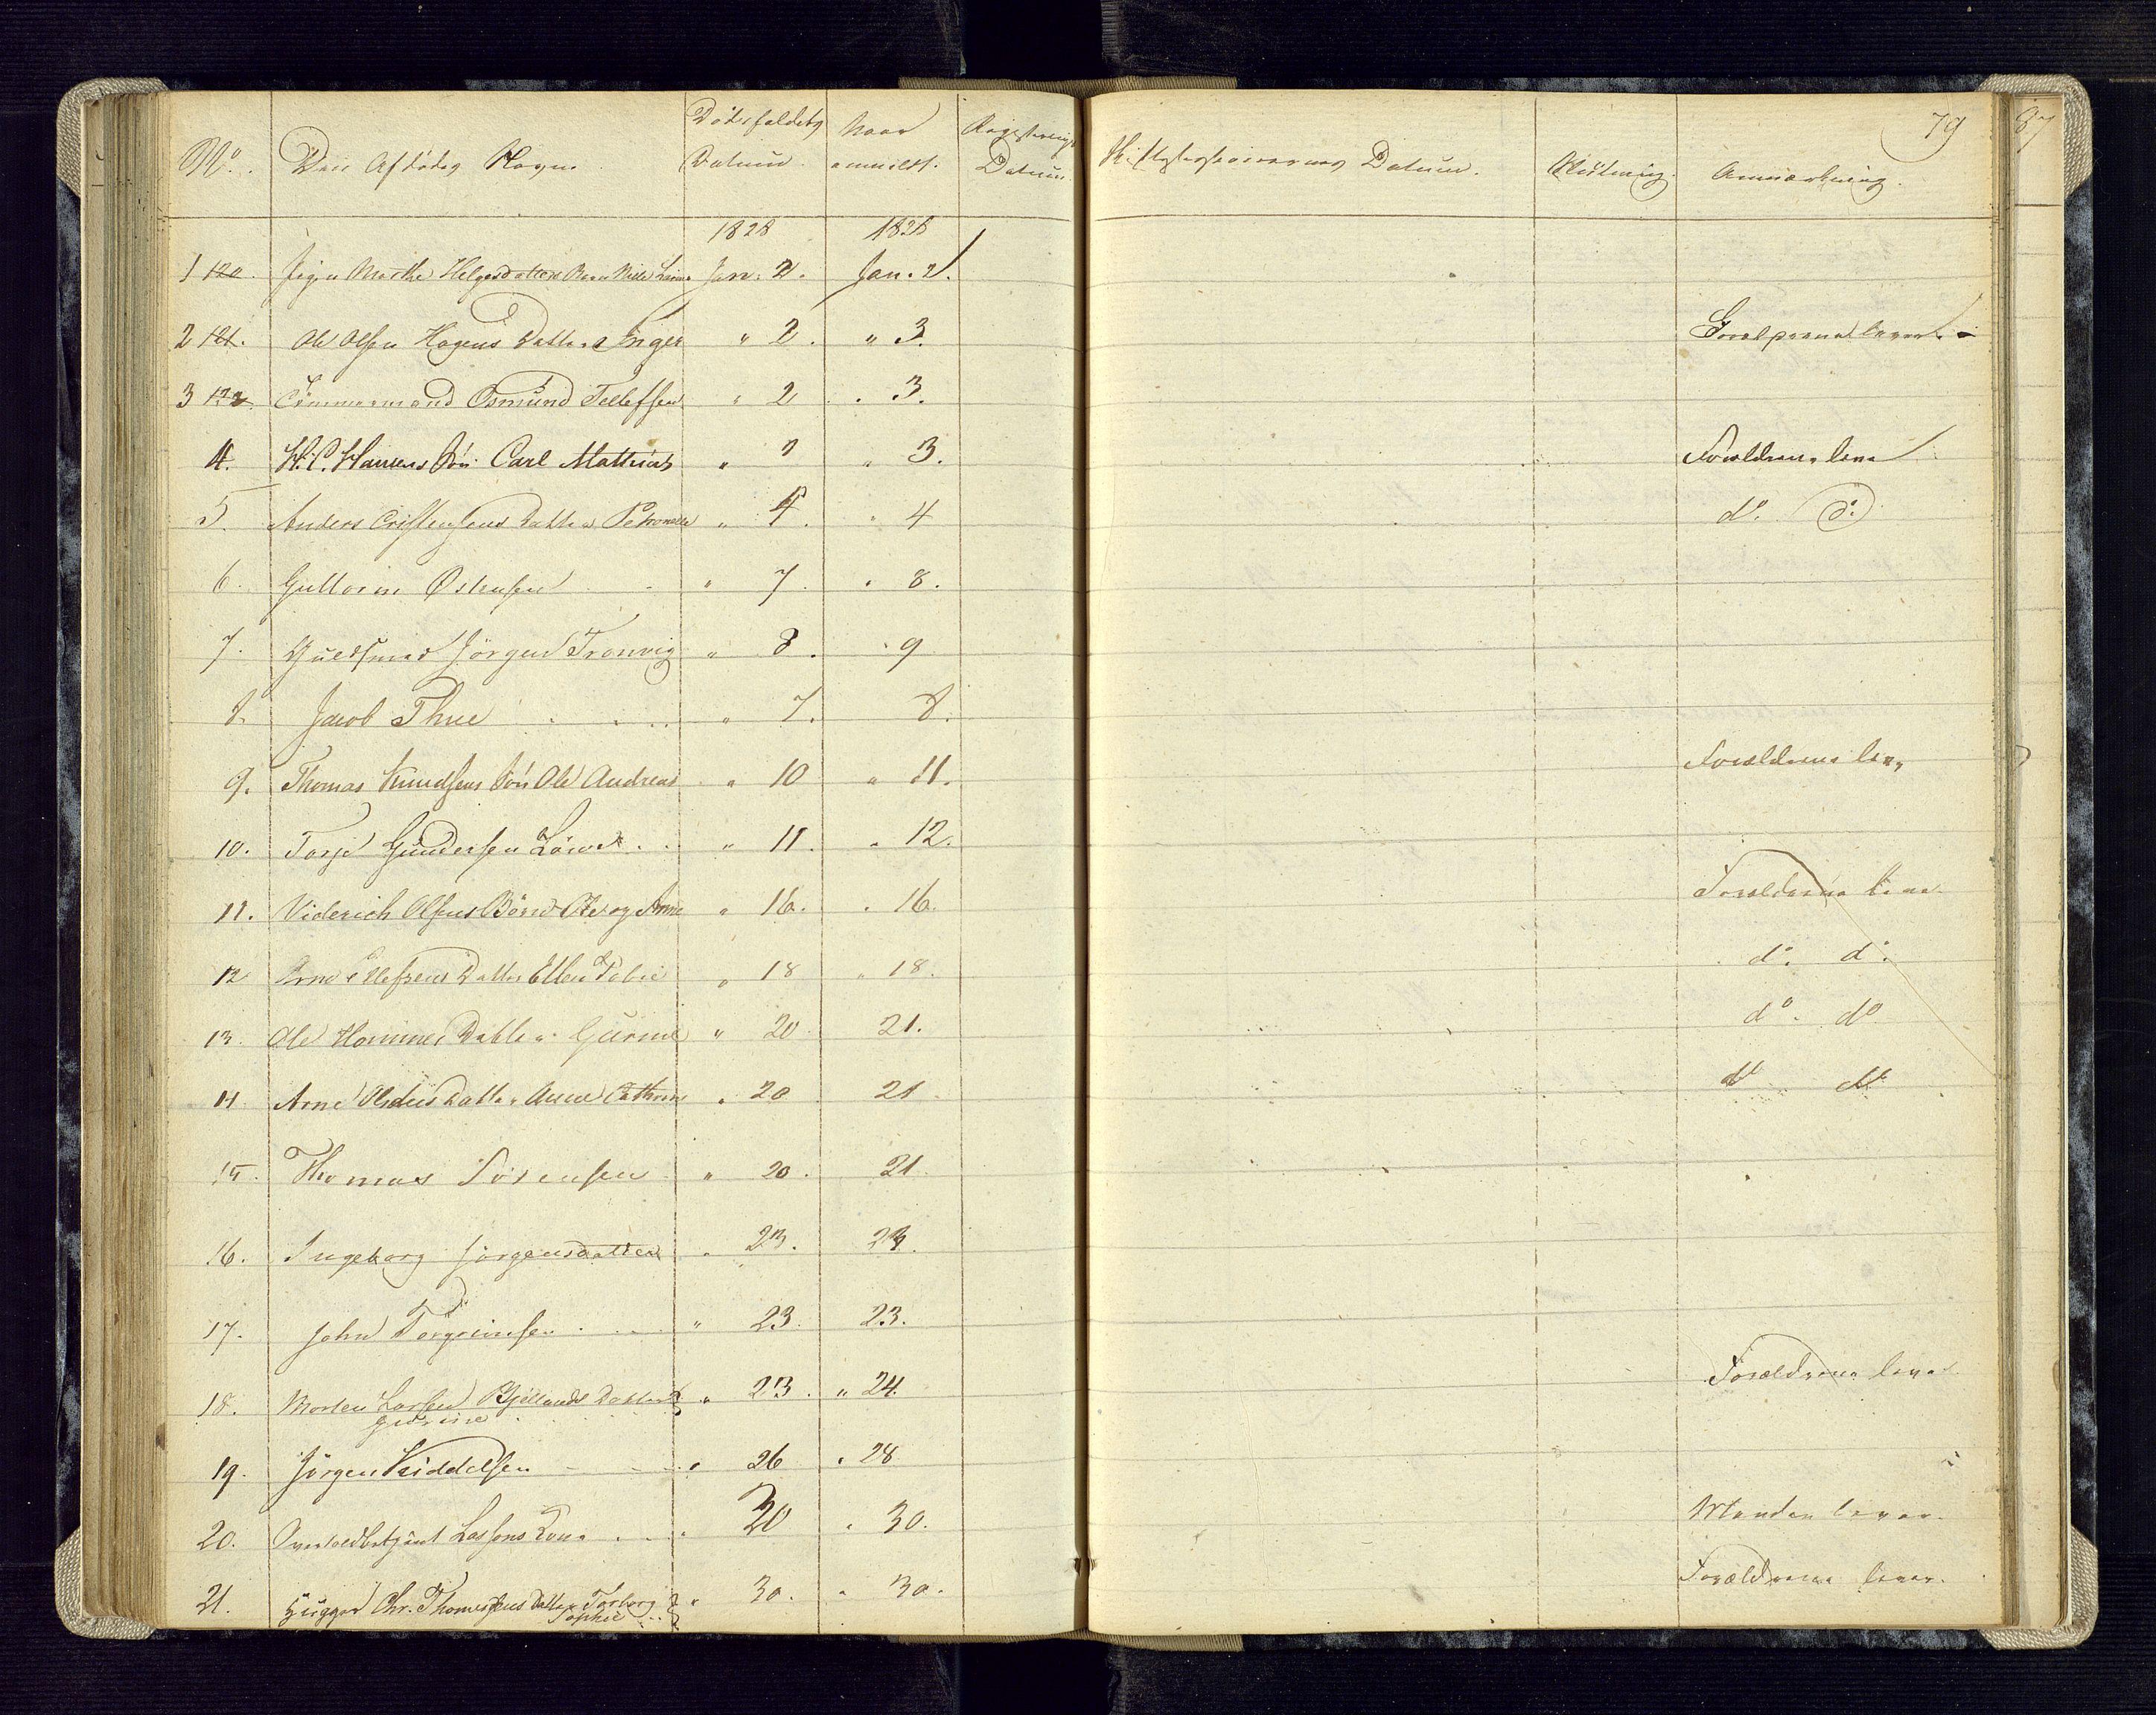 No. Den Afdödes Navn Dödsfaldets Datum Naar anmeldt. Registerings Datum Datum. Slutning. Anmærkning. 79 87
1828 1828
1 120. Pigen Marthe Helgesdatters Barn Jan. 2. Jan. 2.
2 121. Ole Olsen Hagens Datter Inger " 2. " 3. Forældrene lever
3 122. Tömmermand Osmund Tellefsen " 2 " 3.
4. H. C. Hansens Sön Carl Mathias " 2 " 3. Forældrene leve
5. Anders Cristensens Datter Petronelle " 4. " 4 do. do.
6. Guttorm Ostensen " 7. " 8.
7. Guldsmed Jörgen Tronvig " 8. " 9
8. Jacob Thue " 7. 8.
9. Thomas Knudsens Sön Ole Andreas " 10 " 11. Forældrene leve
10. Tarje Gundersen " 11. " 12.
11. Diderich Olsens Börn Ole og Anne " 16. " 16. Forældrene leve
12 Arne Datter Ellen " 18 " 18. do. do.
13. Ole Hommes Datter Gurine " 20 21. do. do
14. Arne Olsens Datter Anne Cathrine " 20 21 do do
15. Thomas Sörensen " 20. 21
16. Ingeborg Jörgensdatter " 23. 23.
17. John Torgrimsen " 23. 23.
18. Morten Larsen Datter " 23. " 24. Forældrene leve
Gurine
19. Jörgen Kiddelsen " 26 " 28
20. Lassens Kone " 30 " 30. Manden lever.
21. Hugger Chr. Thomesens Datter Torborg " 30. " 30. Forældrene lever.
Sophie